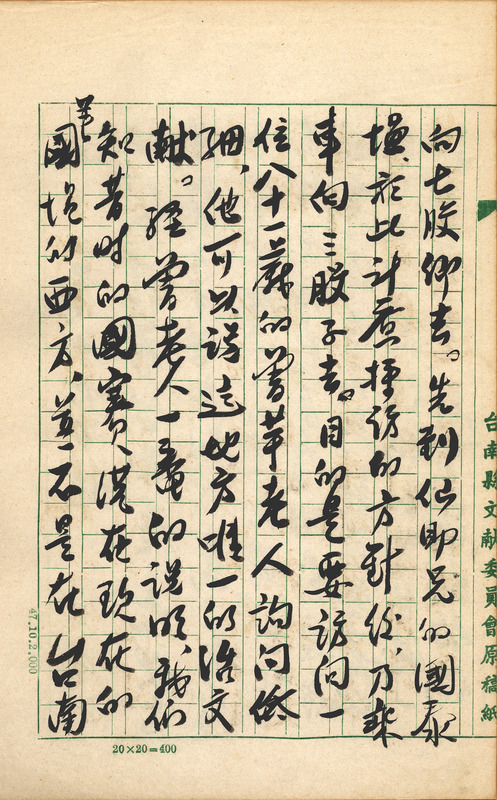 台南縣文献委員會原稿紙
向七股鄉去。先到仙郎兄的國泰
塭、於此計應採訪的方針後、乃乘
車向三股子去。目的是要訪問一
位八十一歲的曾老人詢問詳
細、他可以説這地方唯一的活文
献。經曾老人一番的説明、我們
知昔時的國賽港在現在的
國塭的西方、並不是在台南
47.10.2.000
20×20=400